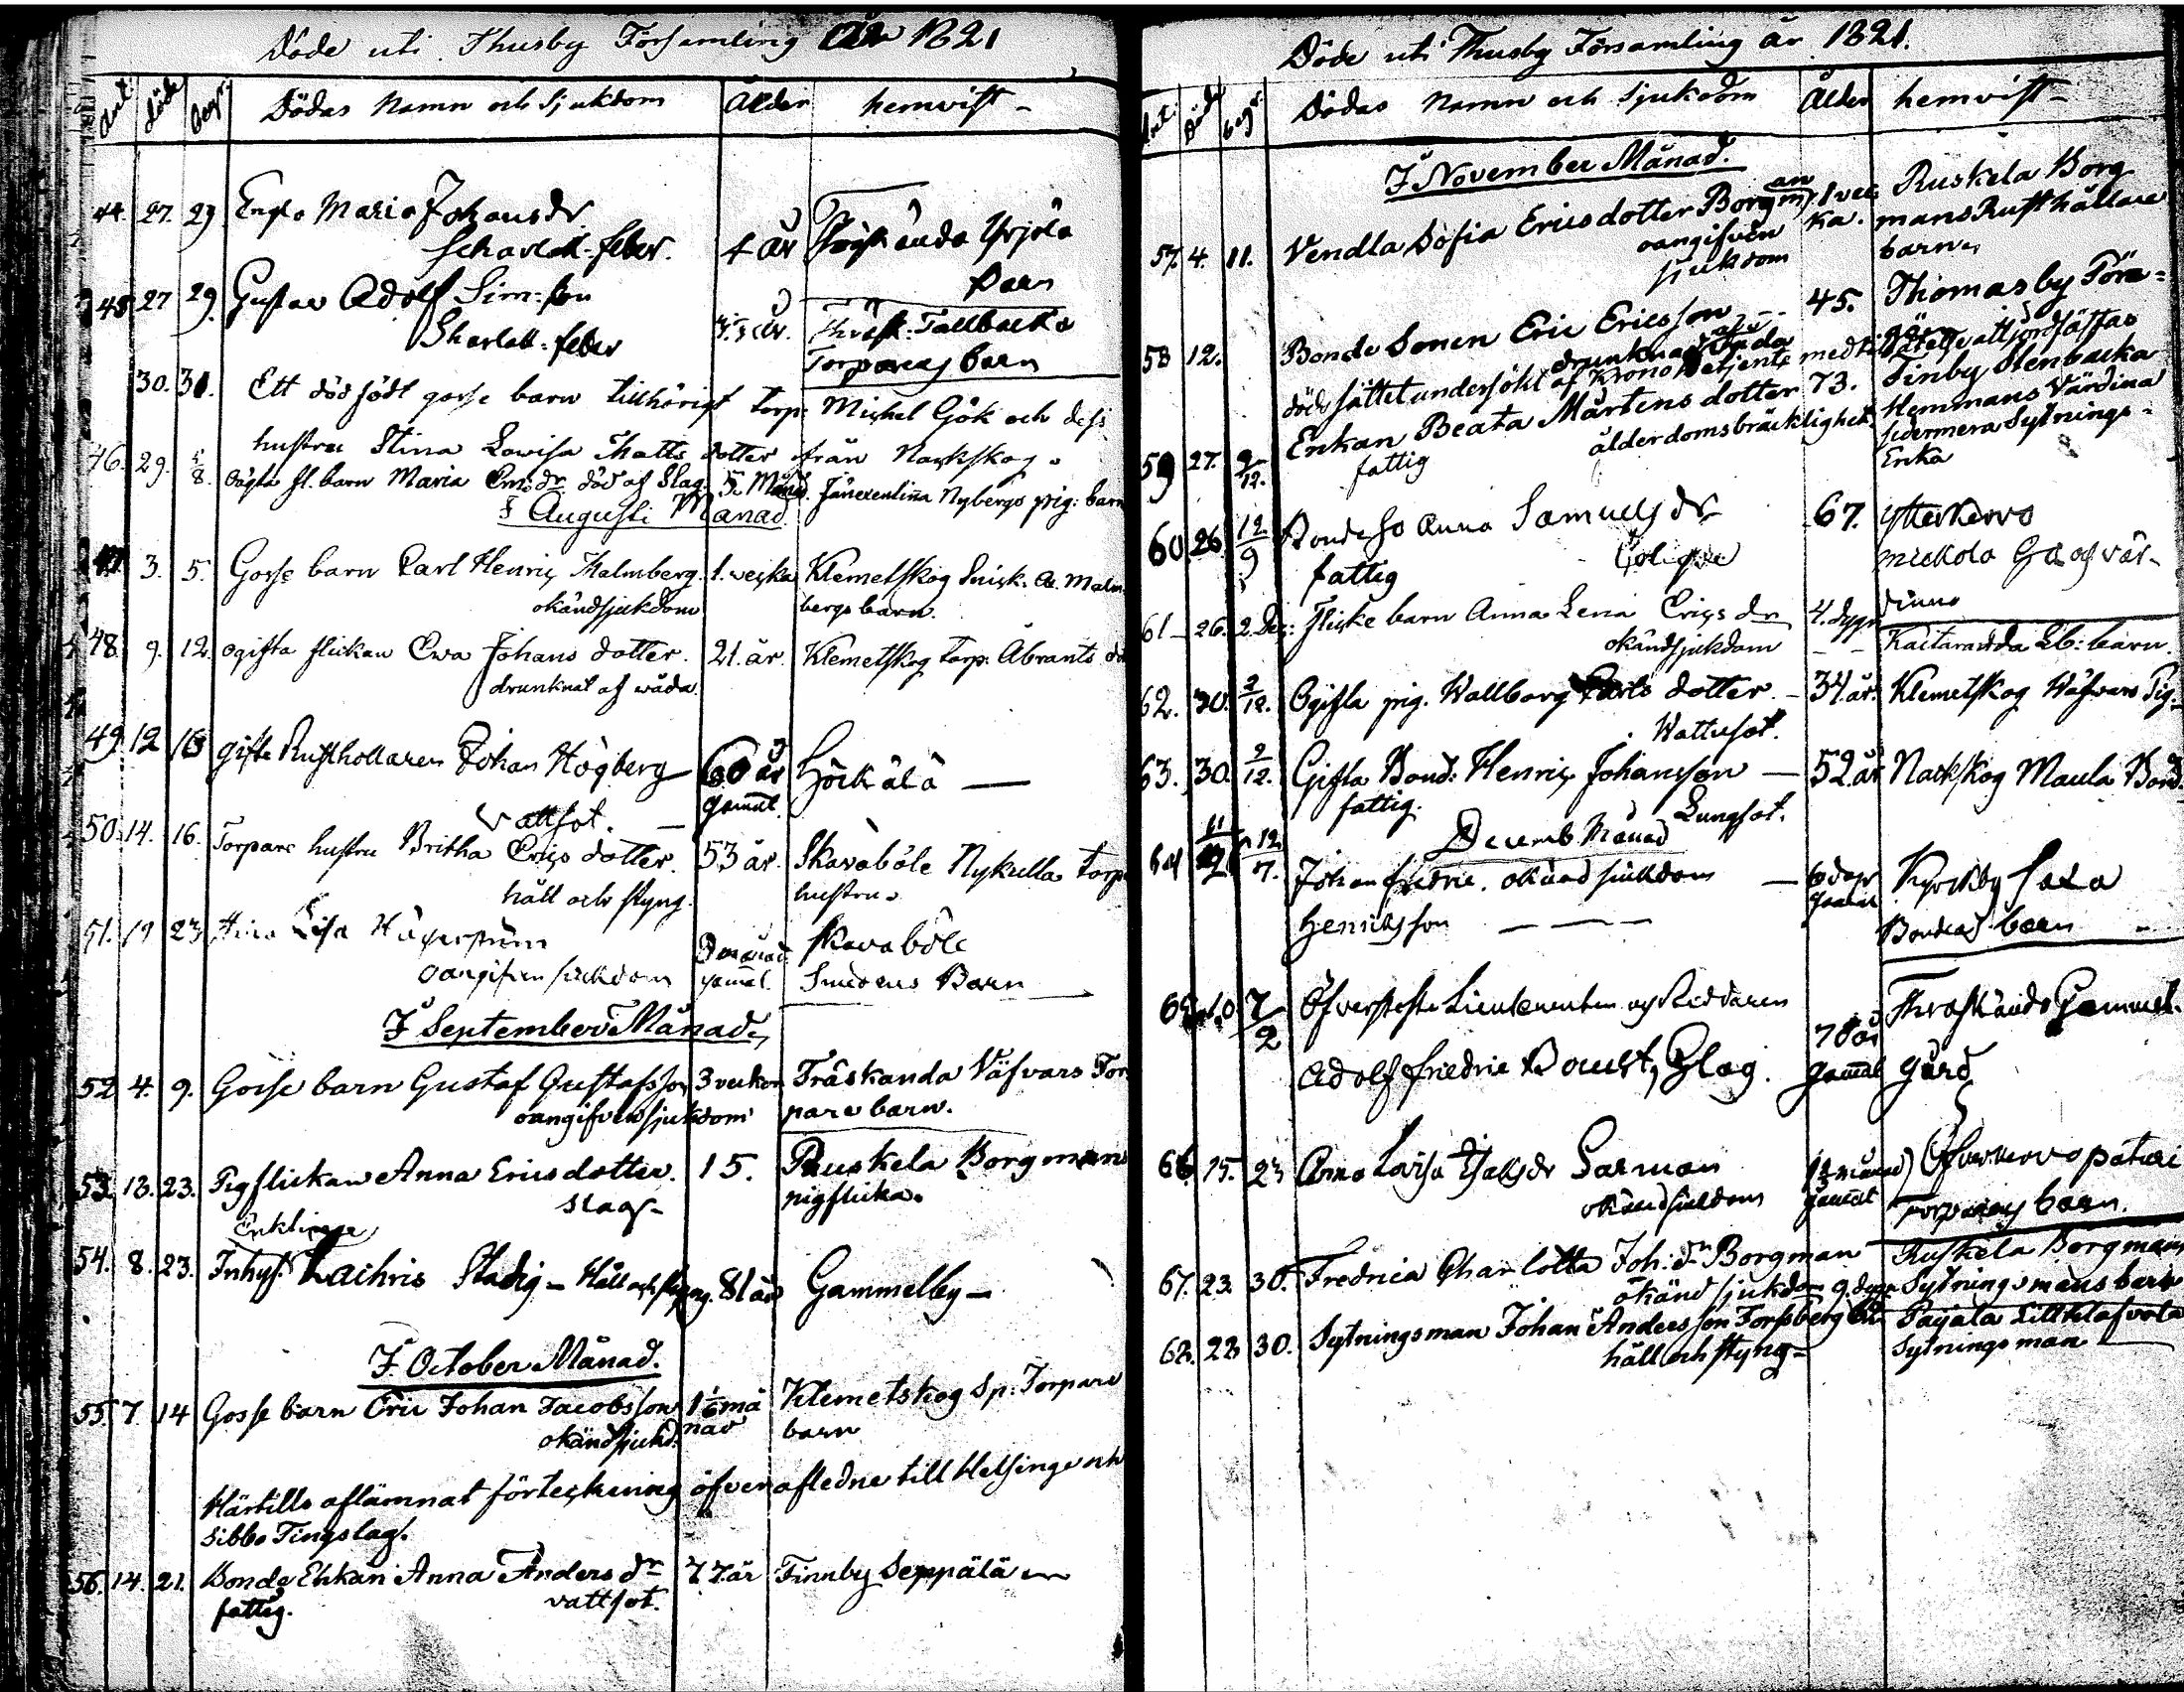 Döde uti Thusby Församling År 1821
Ant: död begr. Dödas Namn och Sjukdom Ålder hemvist -
44. 27. 29 Engla Maria Johansdr Träskända Yrjölä
Scharlak. feber. 4 år barn
45 27 29. Gustav Adolf Sim: son Träsk. Tallbacka
Skarlak. feber Torparens barn
30. 31. Ett dödfödt gosse barn tillhörigt torp: Michel Gök och dess
hustru Stina Lovisa Matts dotter från Nackskog.
46. 29. 5/8. Oägta fl. barn Maria Ems dr död af Slag. 5. Månd. Nybergs pig: barn
I Augusti Månad.
47 3. 5. Gosse barn Carl Henric Malmberg. 1. vecka Klemetskog Snick. Malm
okänd sjukdom bergs barn.
48. 9. 12. ogifta flickan Ewa Johans dotter. 21. år. Klemetskog torp. Åbrants
drunknat af wåda.
49. 12 16 gifte Rusthollaren Johan Högberg 60 år Höckälä —
vattsot. — gamal.
50. 14. 16. Torpare hustru Britha Erics dotter. 53 år. Skavaböle Nykulla torp
håll och styng. hustru.
51. 19 23 Lisa Hägerström 3 månad. Skavaböle
oangifven sjukdom gamal. Smedens Barn
I September Månad,
52 4. 9. Gosse barn Gustaf Gustafsson 3 veckor Träskanda Väfvars Tor
oangifven sjukdom pare barn.
53. 13. 23. Pigflickan Anna Ericsdotter. 15. Ruskela Borgmans
slag - pigflicka.
Enklinge
54. 8. 23. Inhys. Zachris Stadig - Håll och styng. 81 år Gammelby -
I October Månad.
55. 7 14 Gosse barn Eric Johan Jacobsson 1½ må Klemetskog Sp: Torpare
okänd sjukd. nad barn
Härtills aflämnat förteckning öfver afledne till Helsinge och
Sibbo Tingslag.
56. 14. 21. Bonde Enkan Anna Anders dr 77. år Finnby Seppälä
fattig. vattsot.
Döde uti Thusby Församling år 1821.
Ant: Död begr. Dödas Namn och Sjukdom Ålder hemvist -
I November Månad.
57. 4. 11. Vendla Sofia Ericsdotter Borgman 1 vec Ruskela Borg
oangifven ka. mans Rusthållare
sjukdom barn,
58 12. Bonde Sonen Eric Ericsson - - 45. Thomasby Töre=
drunknad af våda gårn
dödssättet undersökt af Krono Betjente med tillåtelse att jordfästas
59 27. 9/12. Enkan Beata Mårtens dotter 73. Finby Stenbacka
fattig ålderdomsbräcklighet. Hemmans Värdina
sedermera Sytnings=
Enka
60 26. 12/9 Bonde Anna Samuels dr 67. Ytterkervo
fattig Mickola
61 - 26. 2. Dec: Flicke barn Anna Lena Erics dr 4. dygn
okänd sjukdom - - Kaitaranda Lb: barn.
62. 30. 2/12. Ogifta pig. Wallborg Carls dotter. - 34 år. Klemetskog Wäfvars Pig.
Wattusot.
63. 30. 9/12. Gifta Bond: Henric Johansson — 52. år Nackskog Maula Bond.
fattig. Lungsot.
Decemb Månad
64 12/7. Johan fredric. okänd sjukdom — 6 dagr Kyrckby Saxa
Henriksson — — — gamal Bondens barn -
65 10 Öfverste Lieutenanten og Riddaren Thräskända Gammel.
78 år
Adolf friedric Slag. gamal gård
66. 15. 23 Anna Lovisa Isaks dr Sarman 1½ månad
okänd sjukdom gamal Torparens barn.
67. 23. 30. Fredrica Charlotta Joh: dr Borgman Ruskela Borgmans
okänd sjukdom 9. dygn Sytningsmans barn
68. 22 30. Sytningsman Johan Andersson Forssberg
håll och styng - Sytningsman